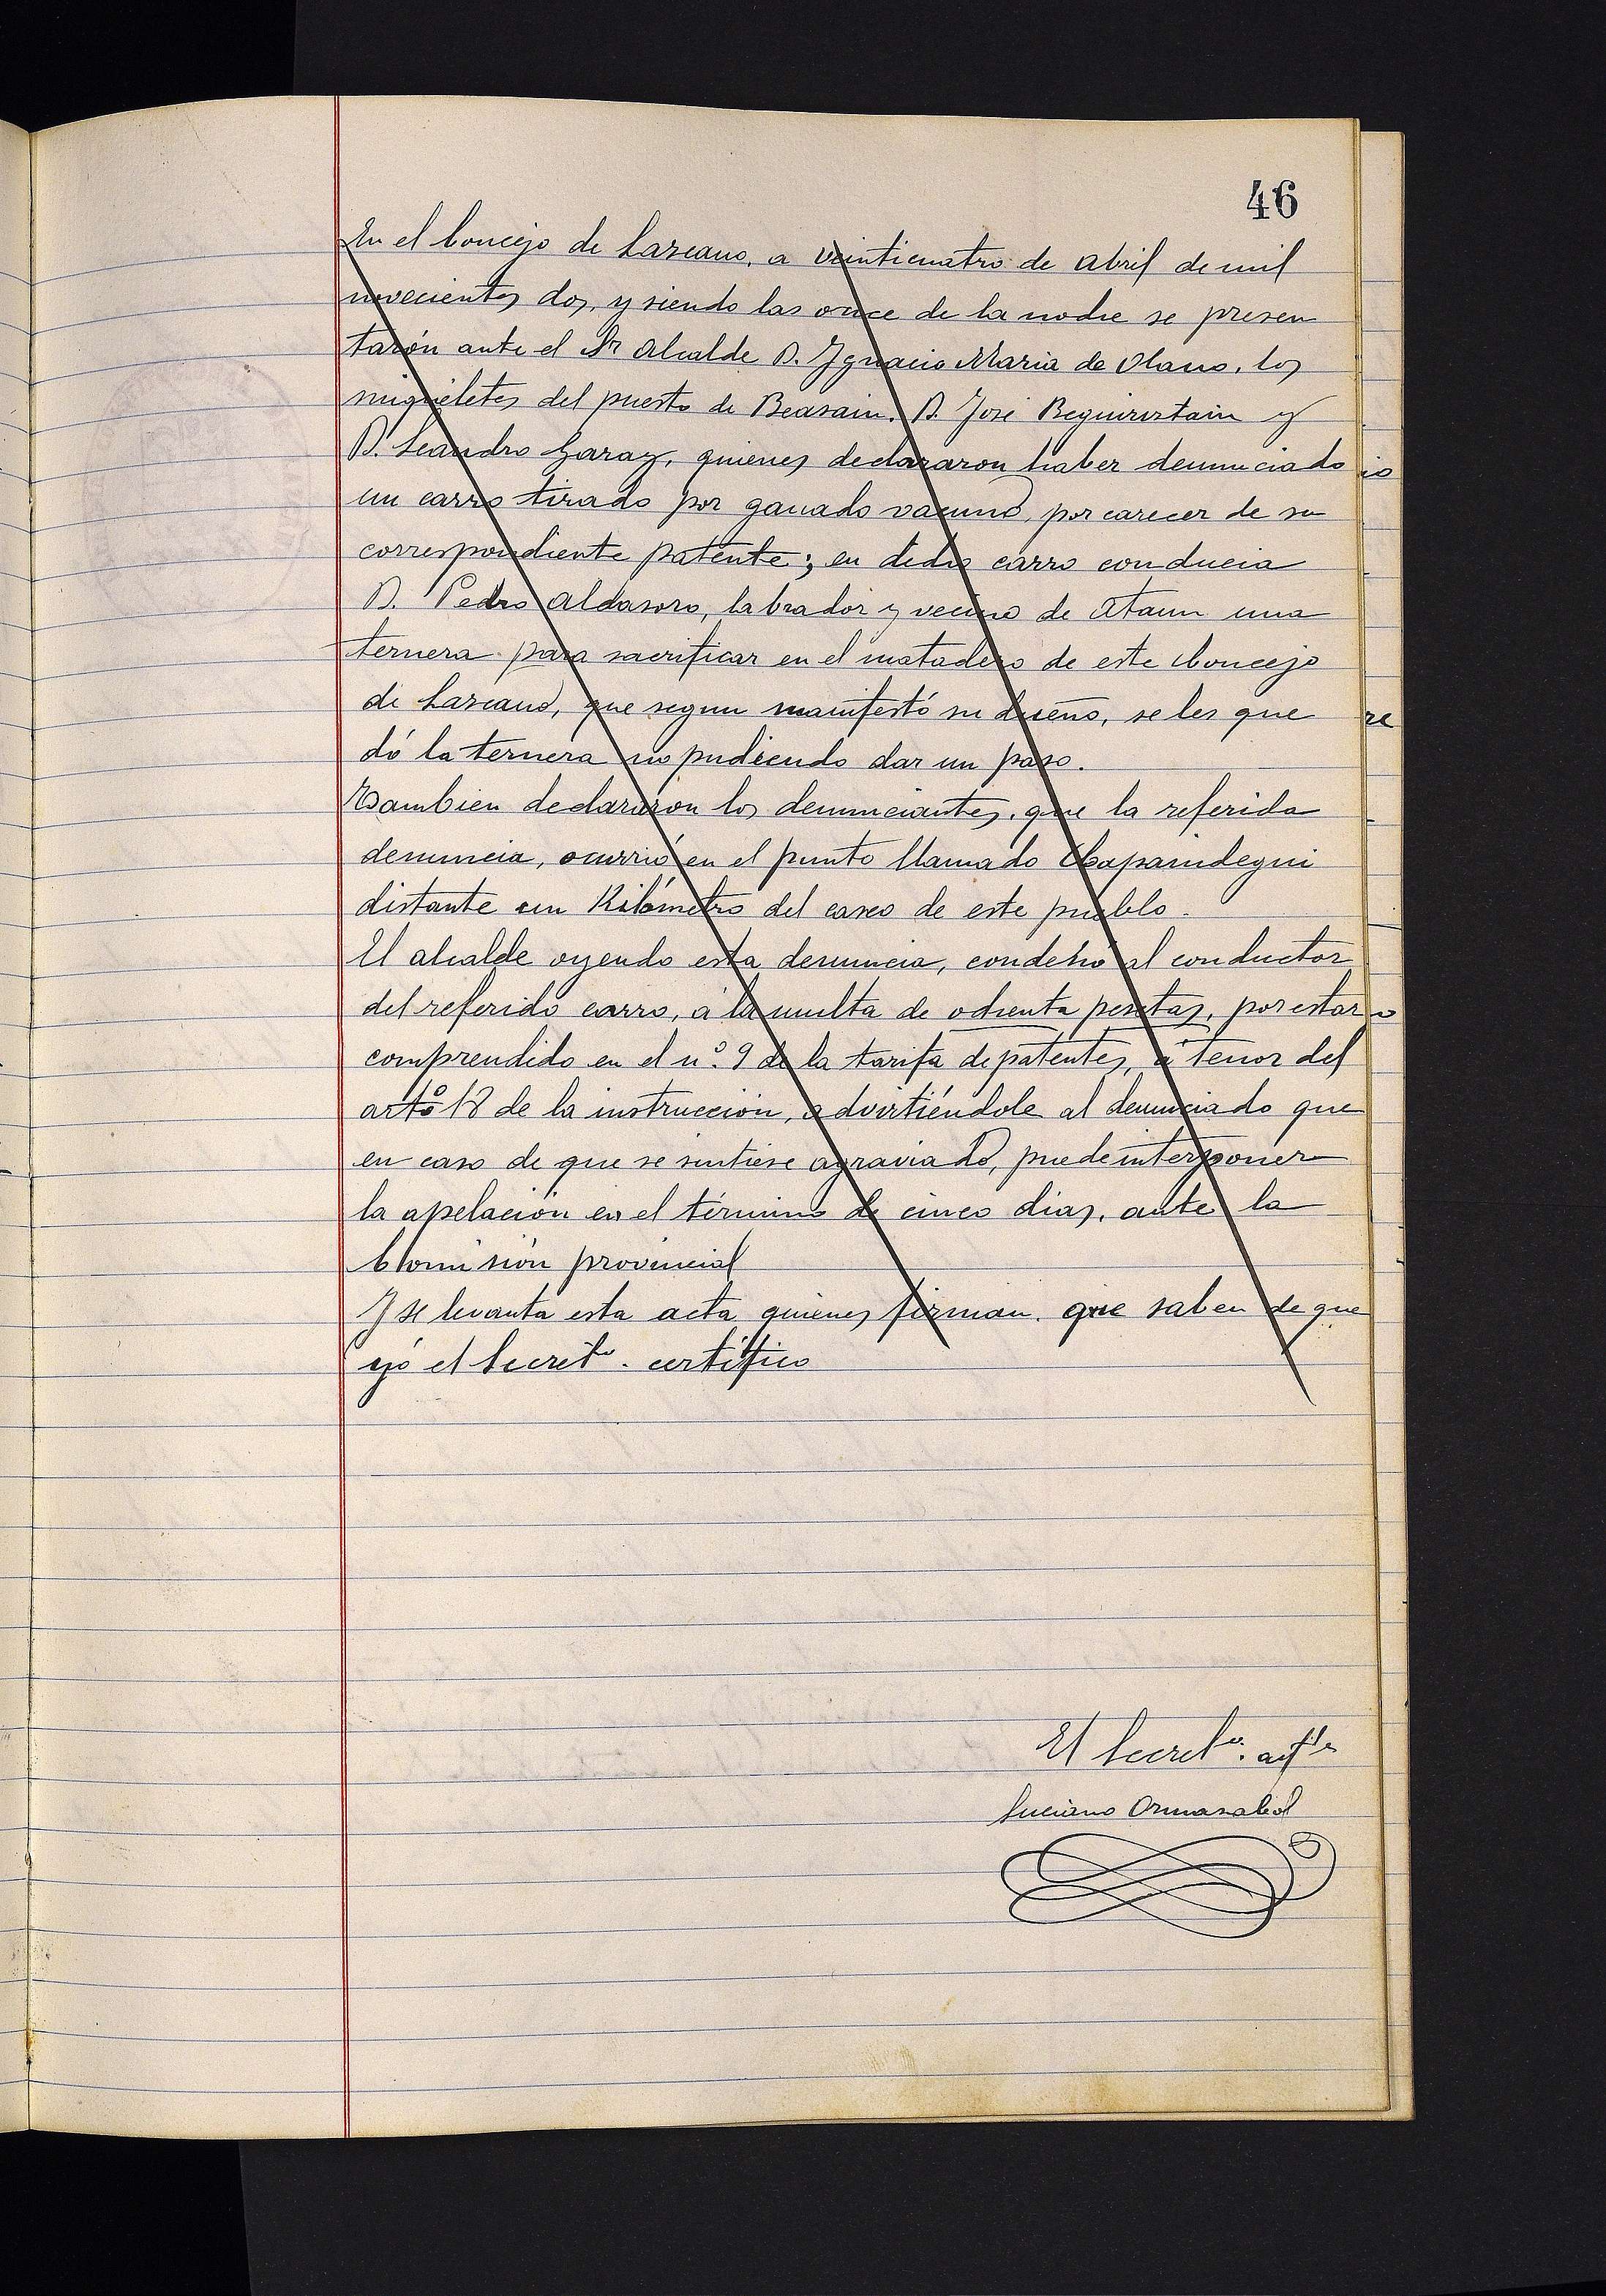 46
En el Concejo de Lazcano, a veinticuatro de abril de mil
novecientos dos, y siendo las once de la noche se presen
tarón ante el Sr Alcalde D. Ygnacio Maria de Olano, los
migueletes del puesto de Beasain, D. José Reguiristain y
D. Leandro Garay, quienes declararon haber denunciado
un carro tirado por ganado vacuno, por carecer de su
correspondiente patente; en dicho carro conducia
D. Pedro Aldasoro, labrador y vecino de Ataun una
ternera para sacrificar en el matadero de este Concejo
de Lazcano, que segun manifestó su dueño, se les que
dó la ternera no pudiendo dar un paso.
Tambien declararon los denunciantes, que la referida
denuncia, ocurrió en el punto llamado Chaparrdegui
distante un Kilómetro del casco de este pueblo.
El alcalde oyendo esta denuncia, condenó al conductor
del referido carro, á la multa de ochenta pesetas, por estar
comprendido en el nº. 9 de la tarifa de patentes, á tenor del
artº 18 de la instruccion, advirtiéndole al denunciado que
en caso de que se sintiese agraviado, puede interponer
la apelación en el término de cinco dias, ante la
Comisión provincial
Y se levanta esta acta quienes firman que saben de que
yo el Secretº. certifico
El Secretº. actl
Luciano Ormazabal